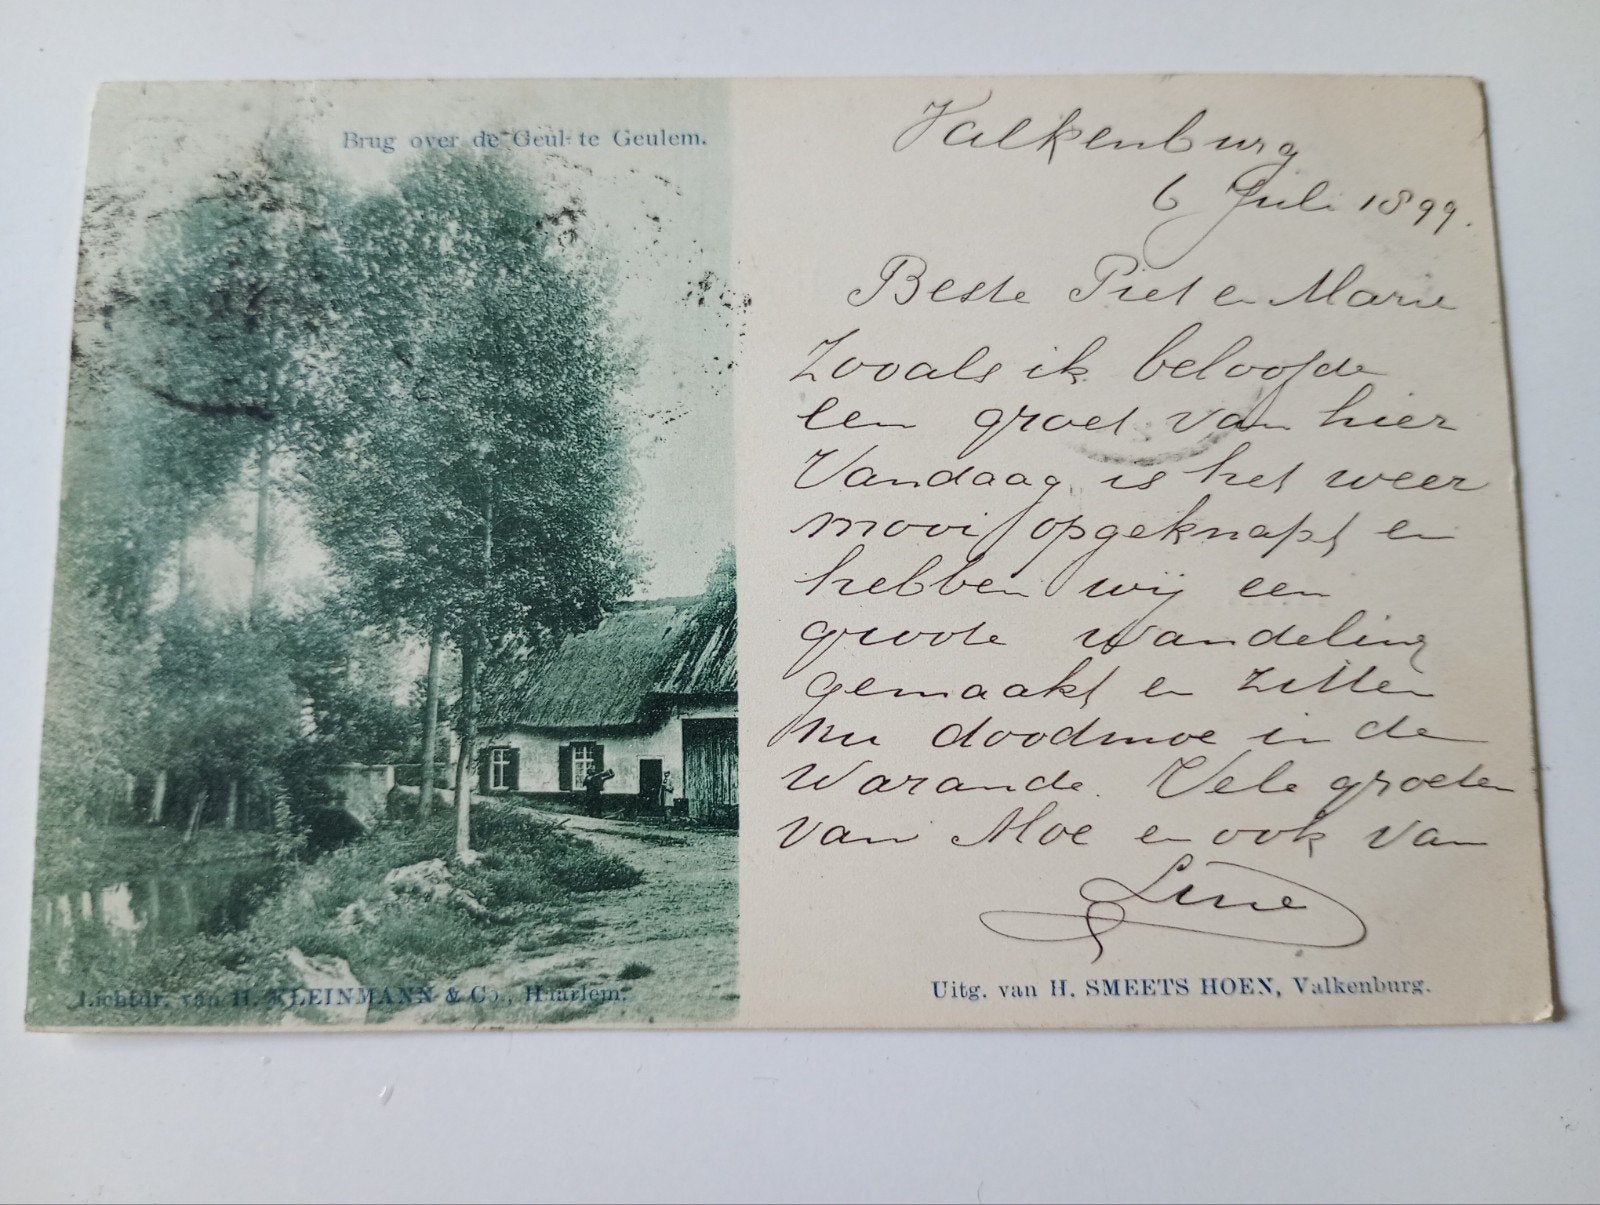 Brug over de Geul te Geulem.
Valkenburg
6 Juli 1899.
Beste Piet en Marie
Zooals ik beloofde
een groet van hier
Vandaag is het weer
mooi opgeknapt en
hebben wij een
groote wandeling
gemaakt en zitten
nu doodmoe in de
Warande. Vele groeten
van Moe en ook van
Line
Lichtdr. van H. KLEINMANN & Co., Haarlem.
Uitg. van H. SMEETS HOEN, Valkenburg.